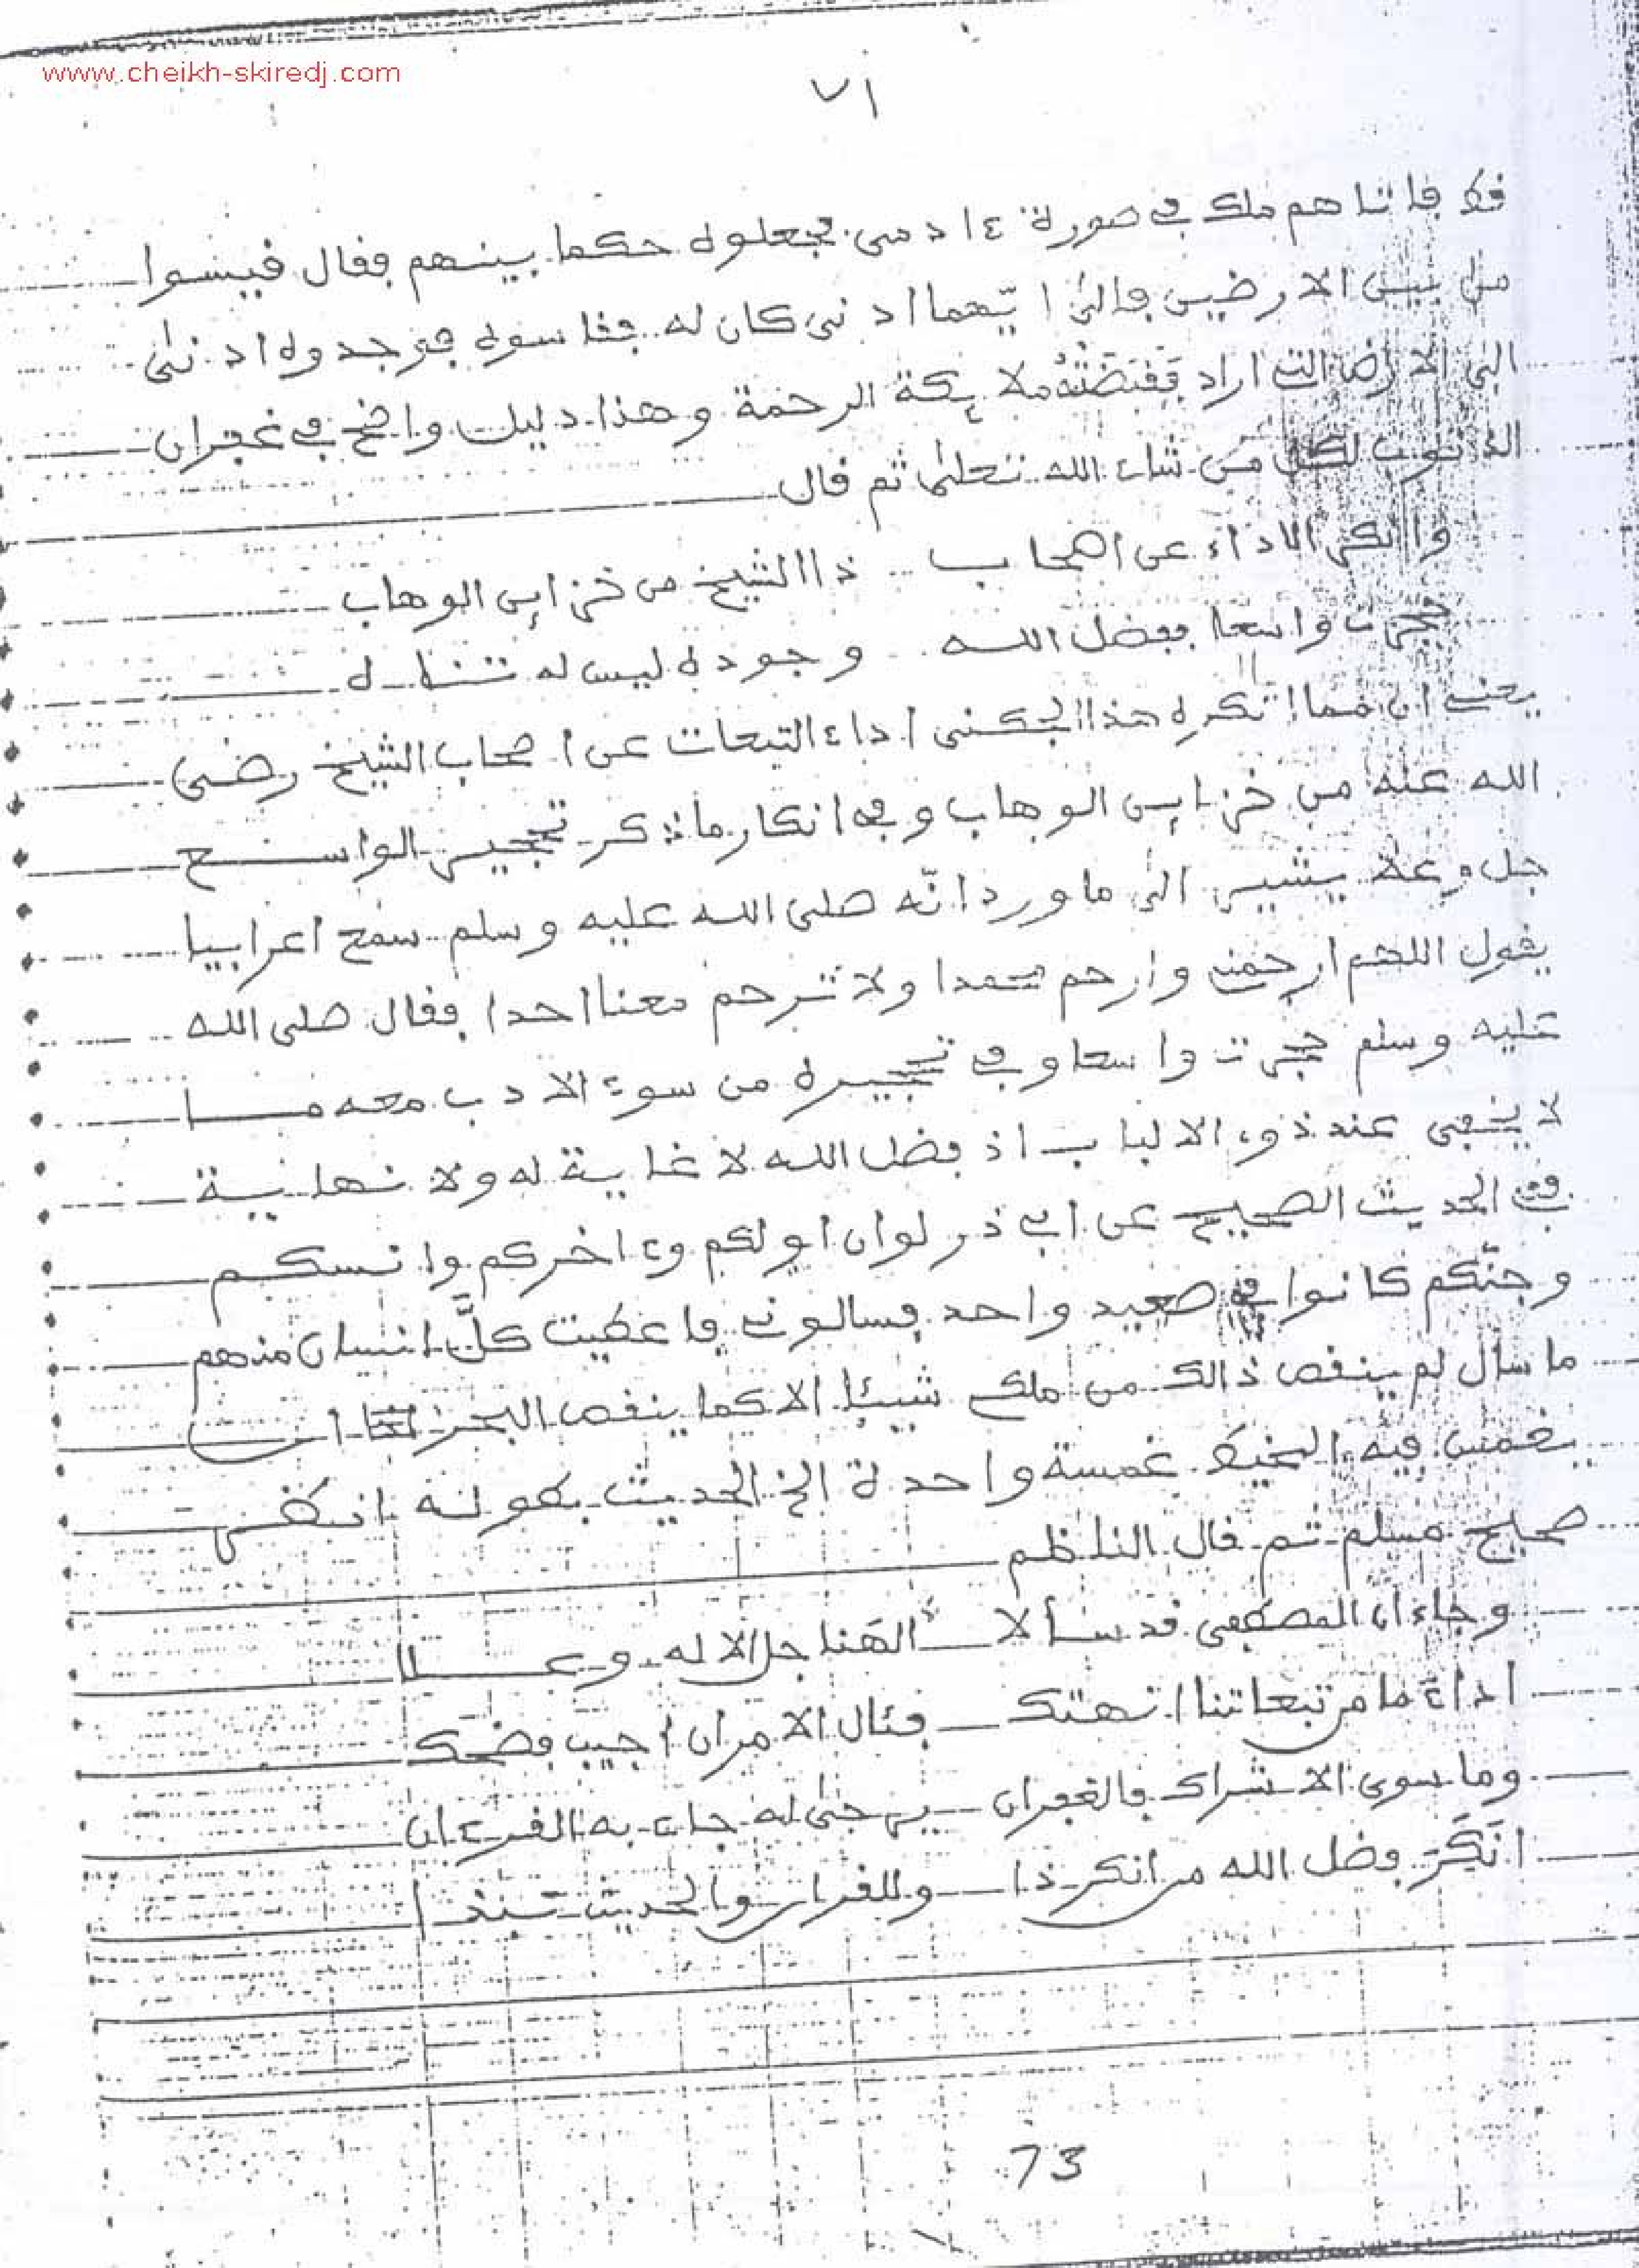 www.cheikh-skiredj.com
٧١
قط فاتاهم ملك في صورة ءادمى فجعلوه حكما بينهم فقال قيسوا
من بين الارضين فالى ايّهما ادنى كان له فقاسوه فوجدوه ادنى
الى الارض التى اراد فقبضته ملايكة الرحمة وهذا دليل واضح في غفران
الذنوب لكل من شاء الله تعلى ثم قال
وانكر الاداء عن اصحاب ذا الشيخ من خزاين الوهاب
حجرت واسعا بفضل الله وجوده ليس له تناه
يعنى ان مما انكره هذا الجكنى اداء التبعات عن اصحاب الشيخ رضى
الله عنه من خزاين الوهاب وفي انكار ما ذكر تحجير الواسع
جل وعلا يشير الى ما ورد انّه صلى الله عليه وسلم سمع اعرابيا
يقول اللهم ارحمنى وارحم محمدا ولا ترحم معنا احدا فقال صلى الله
عليه وسلم حجرت واسعا وفي تحجيره من سوء الادب معه ما
لا يخفى عند ذوى الالباب اذ فضل الله لا غاية له ولا نهاية
ففى الحديث الصحيح عن ابى ذر لو ان اولكم وءاخركم وانسكم
وجنّكم كانوا في صعيد واحد فسالونى فاعطيت كلَّ انسان منهم
ما سال لم ينقص ذالك من ملكى شيئا الا كما ينقص البحر ان
يغمس فيه المخيط غمسة واحدة الخ الحديث بطوله انظر
صحيح مسلم ثم قال الناظم
وجاء ان المصطفى قد سألا الهنا جل الاله وعلا
اداء ما من تبعاتنا انهتك فئال الامر ان اجيب فضحك
وما سوى الاشراك فالغفران يرجى له جاء به القرءان
انكر فضل الله من انكر ذا وللقران والحديث نبذا
73